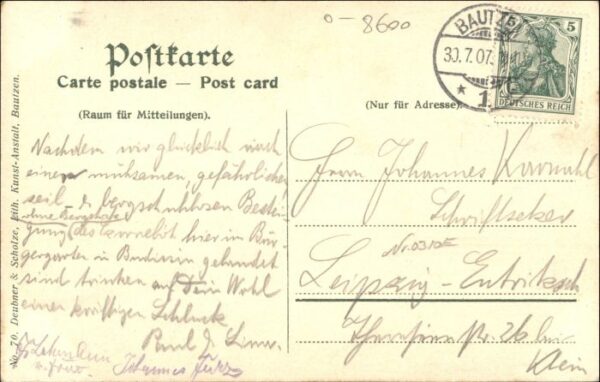 o-8600
BAUTZEN
30.7.07.
* 1.
5
DEUTSCHES REICH
Postkarte
Carte postale — Post card
(Raum für Mitteilungen).
(Nur für Adresse)
No. 70. Deubner & Scholze, lith. Kunst-Anstalt, Bautzen.
Nachdem wir glücklich nach
einer mühsamen, gefährlichen
seil- & bergschuhlosen Bestei-
ohne Bergstöcke
gung des hier im Bür-
gergarten in Budissin gelandet
sind trinken auf Dein Wohl
einen kräftigen Schluck
Paul
u. Frau
Johannes
Herrn Johannes
Schriftsetzer
Leipzig-Eutritzsch
Str. 26 bei
Klein